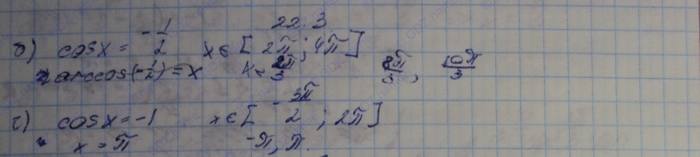 22.3
б) cos x = -1/2   x ∈ [2π; 4π]
arccos(-1/2) = x   8π/3, 10π/3
г) cos x = -1   x ∈ [-3π/2; 2π]
x = π   -π, π.